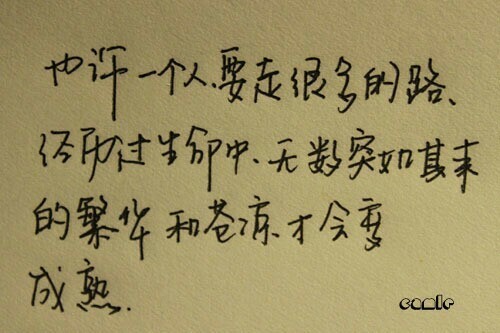 也许一个人,要走很多的路、
经历过生命中、无数突如其来
的繁华和苍凉.才会变
成熟.